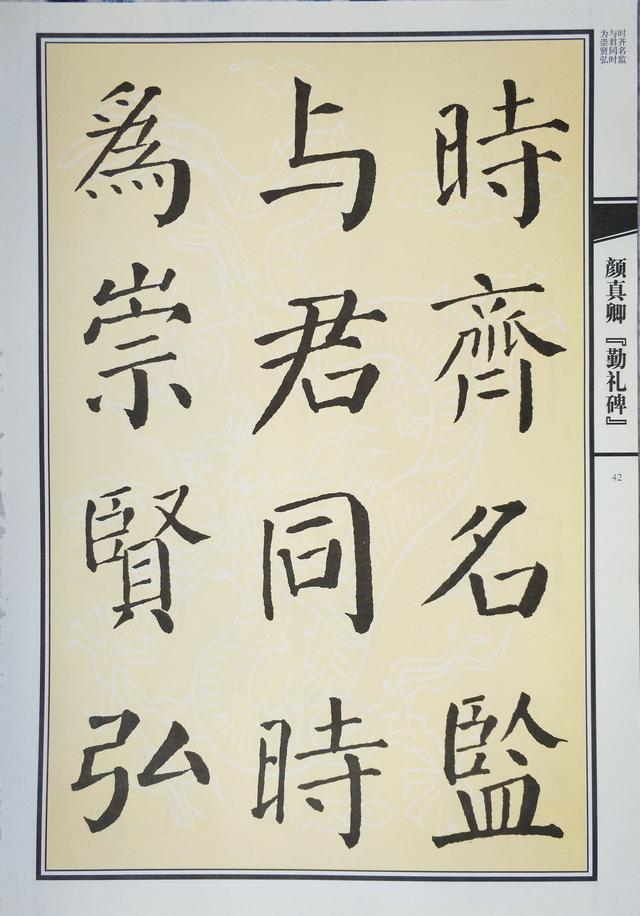 時齊名監
与君同時
為崇賢弘
时齐名监
与君同时
为崇贤弘
颜真卿『勤礼碑』
42